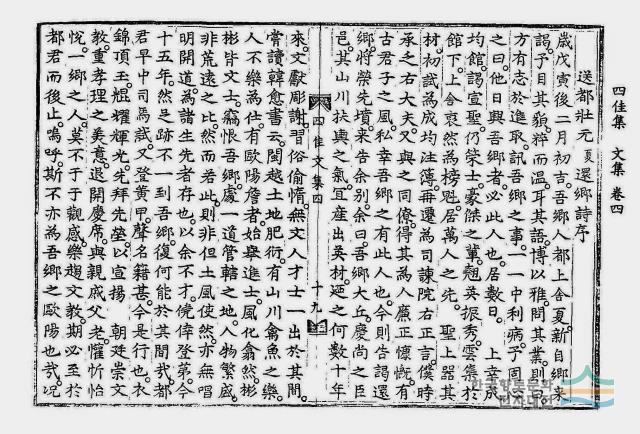 四佳集 文集 卷四
送都壯元夏還鄕詩序
歲戊寅後二月初吉。吾鄕人都上舍夏。新自鄕來
謁予。目其貌。粹而溫。耳其語。博以雅。問其業則曰。
方有志於進取。訊吾鄕之事。一一中利病。予固
之曰。他日興吾鄕者。必此人也。居數日。 上幸成
均館。謁宣聖。仍策士。豪傑之輩。翹英振秀。雲集於
館下。上舍袞然爲榜魁。居萬人之先。 聖上器其
材。初試爲成均注簿。再遷爲司諫院右正言。僕時
承乏右大夫。又與之同僚。得其爲人。廉正慷慨。有
古君子之風。私幸吾鄕之有此人也。今則告謁還
鄕。將榮先墳。來告余別。余曰。吾鄕大丘。慶尙之巨
邑。其山川扶輿之氣。宜産出英材。迺之何數十年
四佳文集四 十九
來。文獻彫謝。習俗偸惰。無文人才士一出於其間。
嘗讀韓愈書云。閩越土地肥衍。有山川禽魚之樂。
人不樂爲仕。有歐陽詹者。始擧進士。風化翕然。彬
彬皆文士。竊恨吾鄕。處一道管轄之地。人物繁盛。
非荒遠之比。然而若此。則非但土風使然。亦無唱
明開道爲諸生先者存也。以余不才。僥倖登第。今
十五年。然足跡不一到吾鄕。復何能於其間哉。都
君早中司馬試。又登黃甲。聲名籍甚。今是行也。衣
錦頂玉。焜燿輝光。先拜先塋。以宣揚 朝廷崇文
敎重孝理之美意。退開慶席。與親戚父老。懽忻怡
悅。一鄕之人。莫不于于觀感。樂趨文敎。期必至於
都君而後止。嗚呼。斯不亦爲吾鄕之歐陽也哉。況
한국향토문화
전자대전